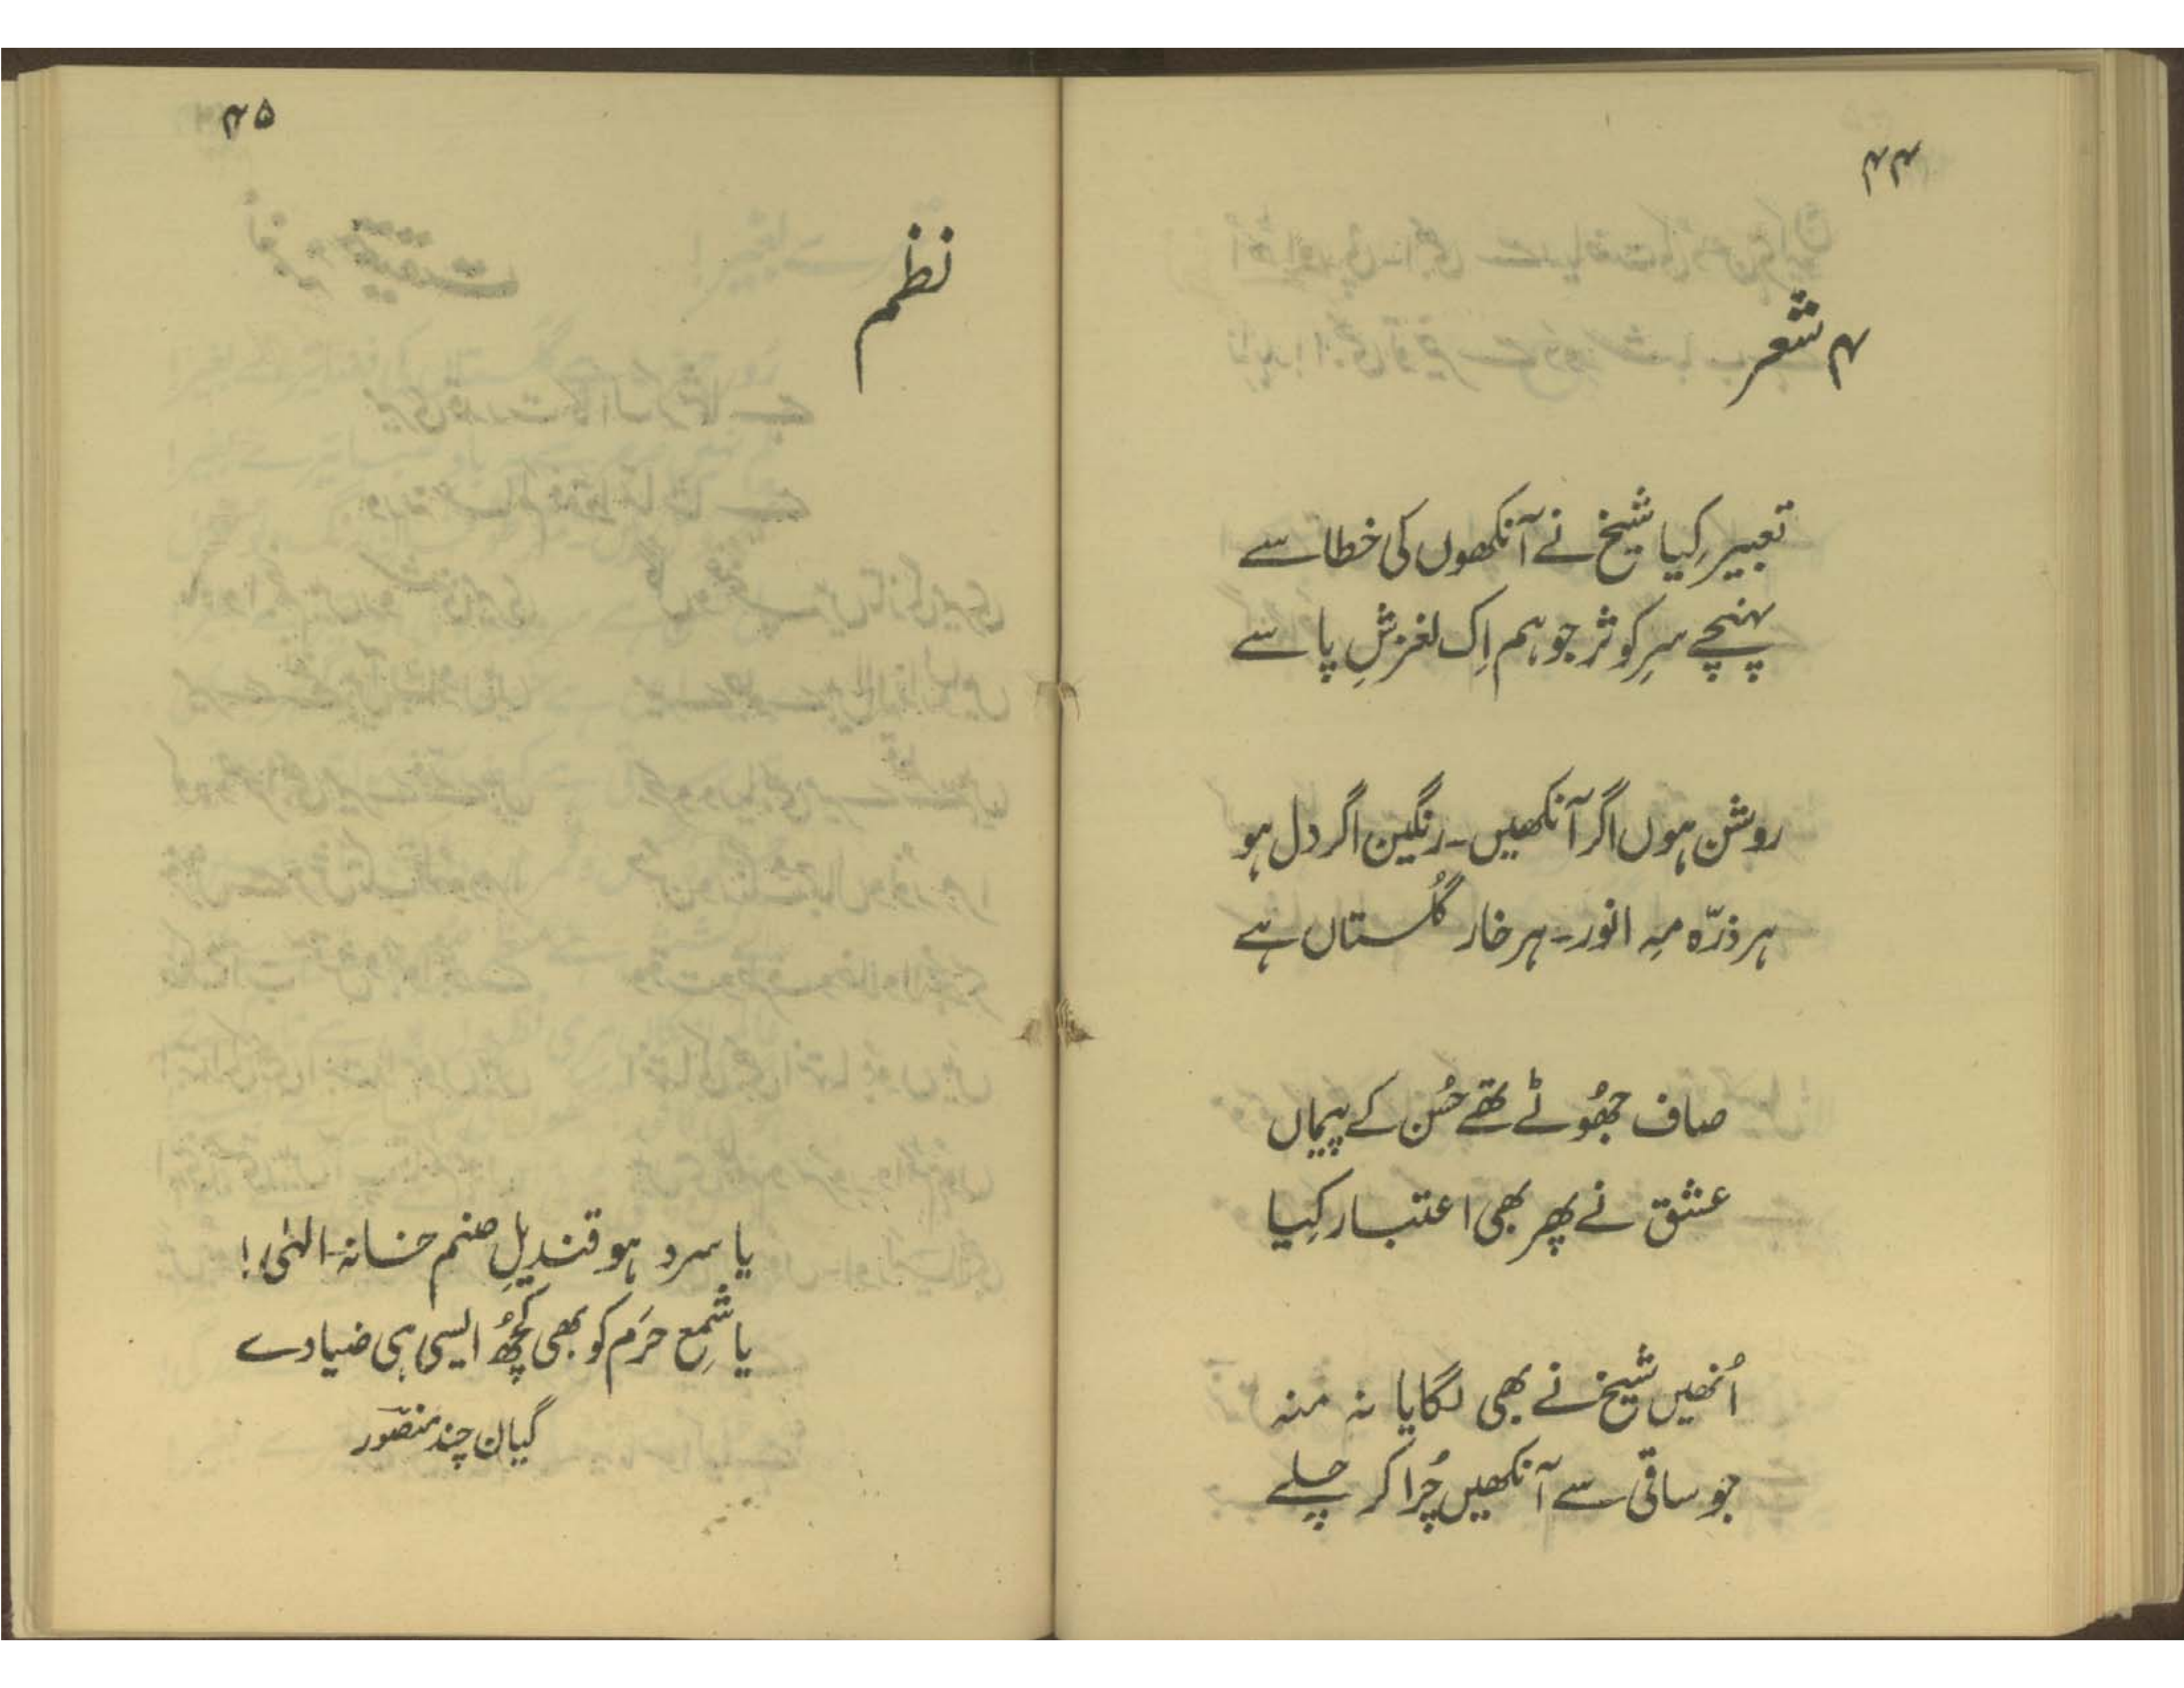 ۴۴
۴ شعر
تعبیر کِیا شیخ نے آنکھوں کی خطا سے
پہنچے سرِ کوثر جو ہم اِک لغزشِ پا سے
روشن ہوں اگر آنکھیں۔ رنگین اگر دل ہو
ہر ذرّہ مہِ انور۔ ہر خار گُلستاں ہے
صاف جھُوٹے تھے حُسن کے پیماں
عشق نے پھر بھی اعتبار کِیا
اُنھیں شیخ نے بھی لگایا نہ منہ
جو ساقی سے آنکھیں چُرا کر چلے
۴۵
نظم
یا سرد ہو قندیلِ صنم خانہ۔ الٰہی!
یا شمعِ حَرَم کو بھی کُچھ ایسی ہی ضیا دے
گیان چند منصّور